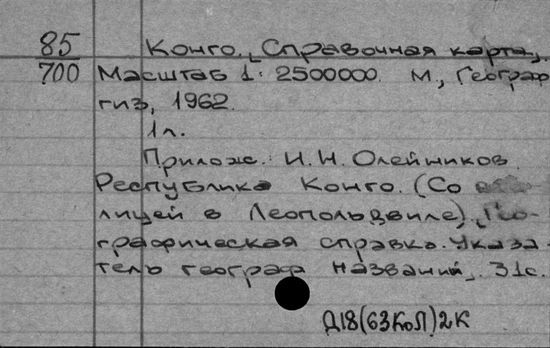 85 Конго. [Справочная карта].
700 Масштаб 1: 2500000. М., Географ
гиз, 1962.
1 л.
Прилож.: И.Н. Олейников.
Республика Конго. (Со
лицей в Леопольдвиле). [Гео-
графическая справка. Указа
тель географ названий]. 31с.
Д18(63КоЛ)2К